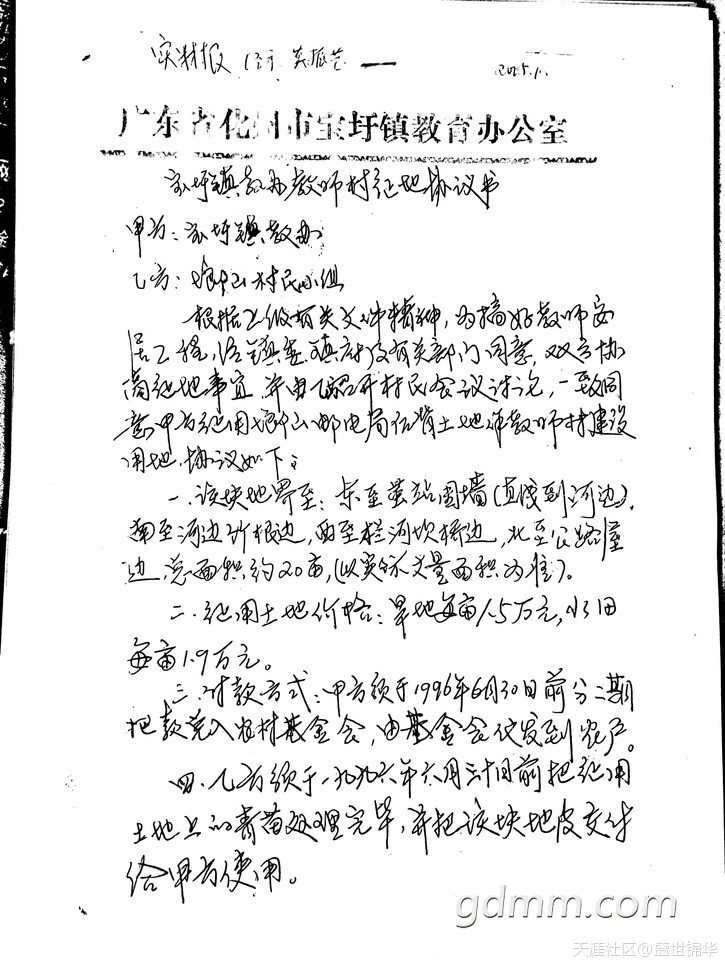 广东省化州市宝圩镇教育办公室
宝圩镇教办教师村征地协议书
甲方：宝圩镇教办
乙方：山村民小组
根据上级有关文件精神，为搞好教师安
居工程，经镇委镇府及有关部门同意，双方协
商征地事宜，并由乙召开村民会议讨论，一致同
意甲方征用山邮电局后背土地作教师村建设
用地，协议如下：
一、该块地界至：东至站围墙（直线到河边），
南至河边竹根边，西至拦河坝桥边，北至公路
边，总面积约20亩，（以实际丈量面积为准）。
二、征用土地价格：旱地每亩1.5万元，水田
每亩1.9万元。
三、付款方式：甲方须于1996年6月30日前分二期
把款兑入农村基金会，由基金会代发到农户。
四、乙方须于一九九六年六月三十日前把征用
土地上的青苗处理完毕，并把该块地皮交付
给甲方使用。
gdmm.com
天涯社区@盛世锦华